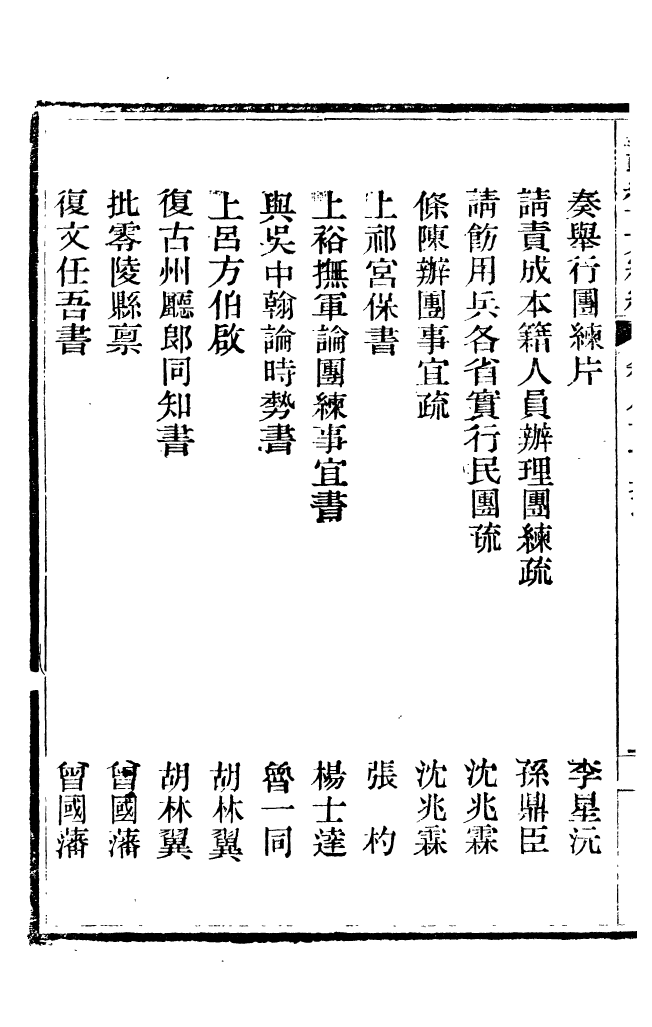 奏舉行團練片　李星沅
請責成本籍人員辦理團練疏　孫鼎臣
請飭用兵各省實行民團疏　沈兆霖
條陳辦團事宜疏　沈兆霖
上祁宮保書　張杓
上裕撫軍論團練事宜書　楊士達
與吳中翰論時勢書　魯一同
上呂方伯啟　胡林翼
復古州廳郎同知書　胡林翼
批零陵縣稟　曾國藩
復文任吾書　曾國藩